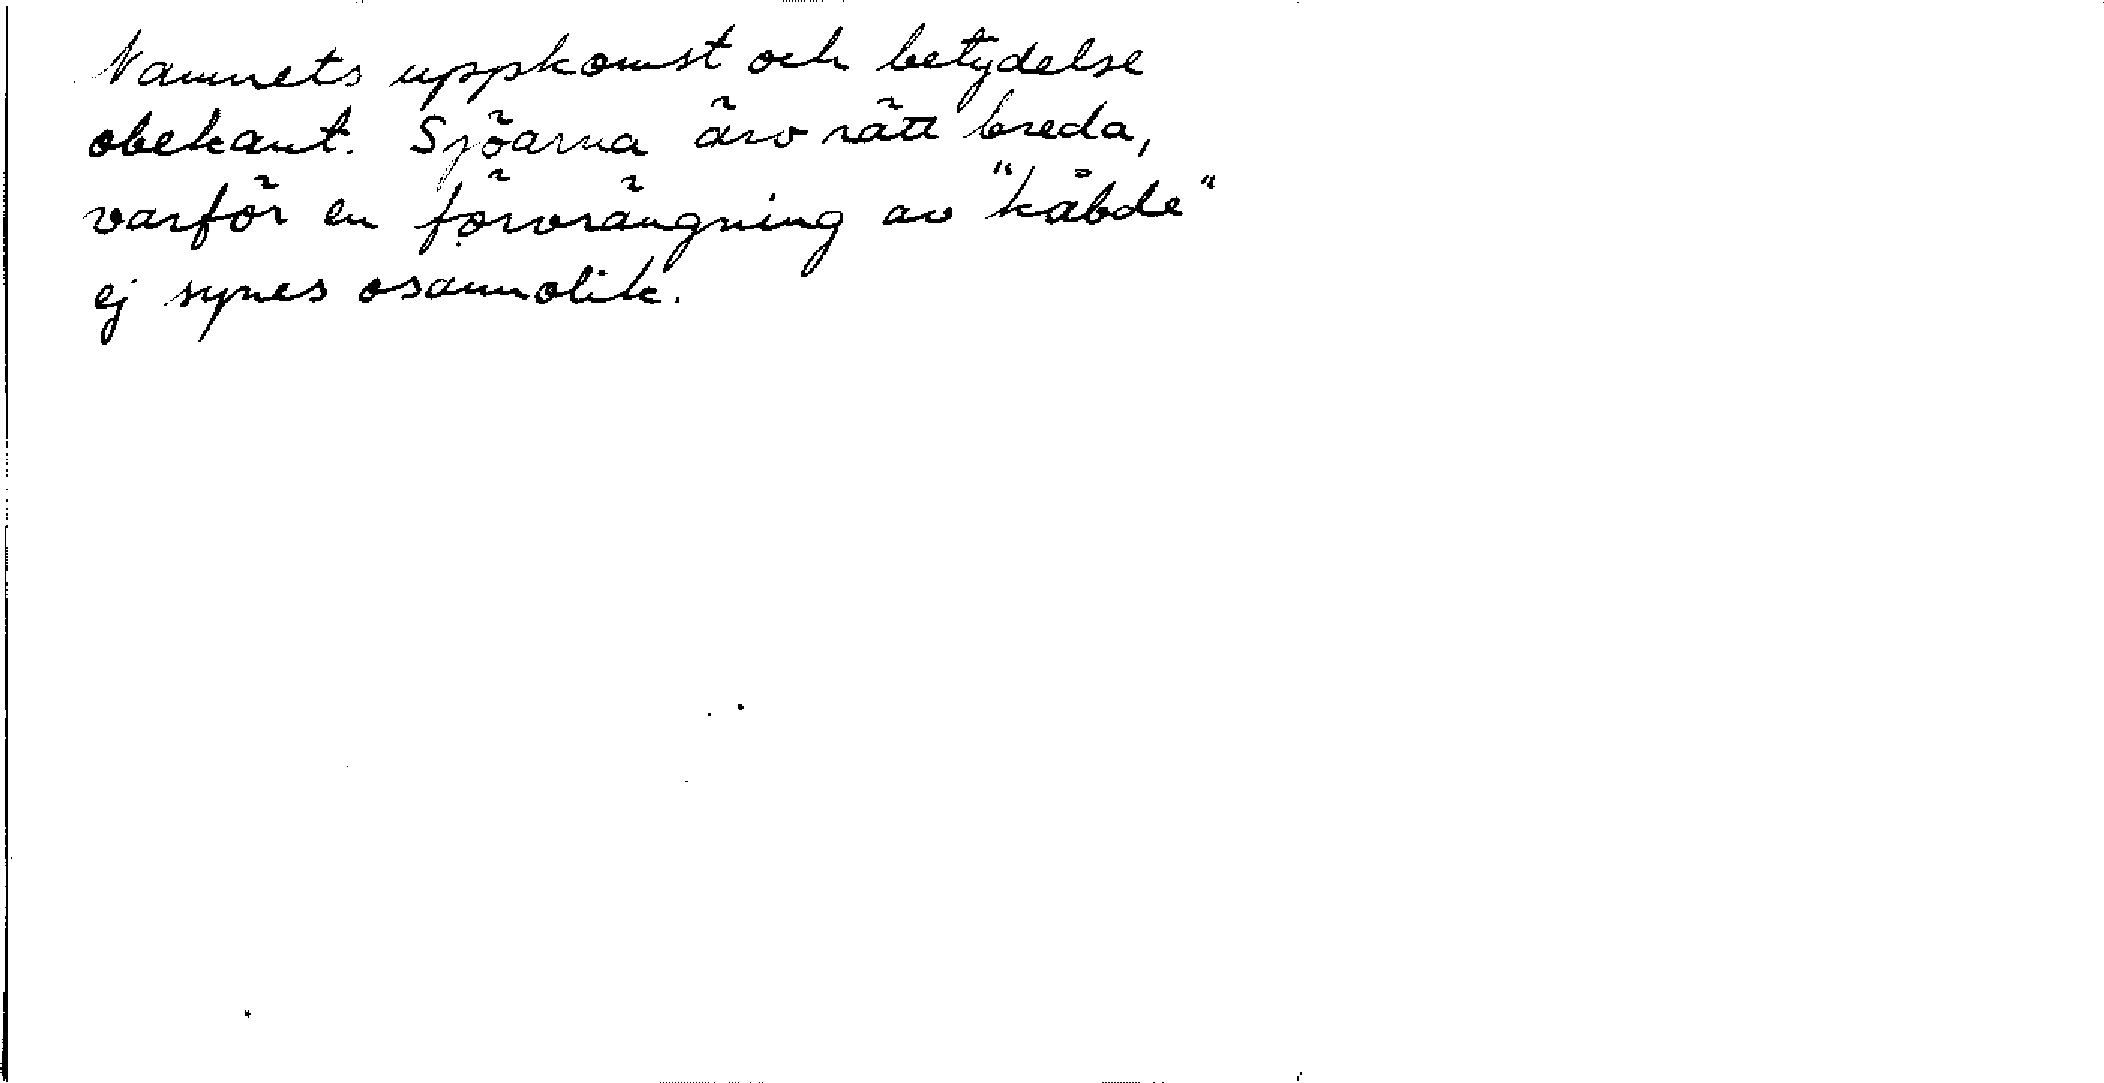 Namnets uppkomst och betydelse
obekant. Sjöarna äro rätt breda,
varför en förvrängning av "käbde"
ej synes osannolik.